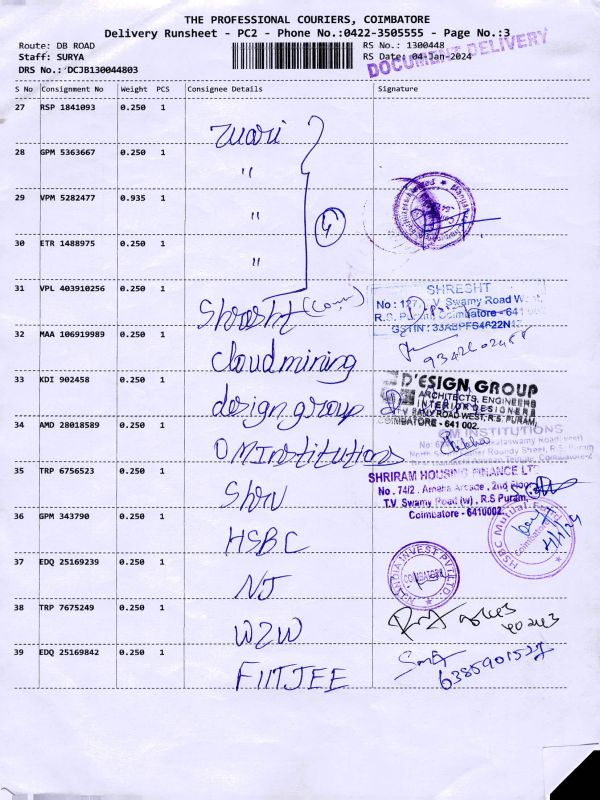 THE PROFESSIONAL COURIERS, COIMBATORE
Delivery Runsheet - PC2 - Phone No.:0422-3505555 - Page No.:3
Route: DB ROAD
RS No.: 1300448
Staff: SURYA
RS Date: 04-Jan-2024
DRS No.: DCJB130044803
DOCUMENT DELIVERY
S No Consignment No Weight PCS Consignee Details Signature
27 RSP 1841093 0.250 1 Zuari
28 GPM 5363667 0.250 1 "
29 VPM 5282477 0.935 1 "
4
30 ETR 1488975 0.250 1 "
31 VPL 403910256 0.250 1 Shresht
SHRESHT
V. Swamy Road
R.S. Puram, Coimbatore - 641
32 MAA 106919989 0.250 1 Cloud mining
33 KDI 902458 0.250 1 design group
D'ESIGN GROUP
ARCHITECTS, ENGINEERS
INTERIOR DESIGNERS
T.V. SAMY ROAD WEST, R.S. PURAM,
COIMBATORE - 641 002.
34 AMD 28018589 0.250 1 OM Institutions
OM INSTITUTIONS
35 TRP 6756523 0.250 1 Shri
SHRIRAM HOUSING FINANCE LTD
No. 74/2, Arcade, 2nd Floor
T.V. Swamy Road (w), R.S Puram,
Coimbatore - 6410002.
36 GPM 343790 0.250 1 HSBC
HSBC Mutual Fund
Coimbatore
4/1/24
37 EDQ 25169239 0.250 1 NJ
NJ INDIA INVEST PVT LTD
COIMBATORE
38 TRP 7675249 0.250 1 WZW
39 EDQ 25169842 0.250 1 FIITJEE
6385901527